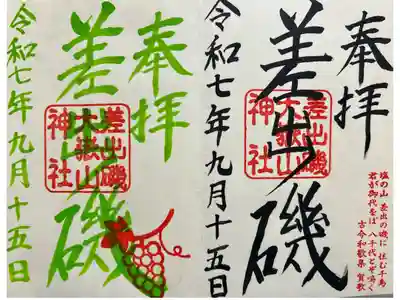 奉拝
差出ノ磯
差出磯
大嶽山
神社
令和七年九月十五日
奉拝
差出ノ磯
差出磯
大嶽山
神社
令和七年九月十五日
塩の山 差出の磯に 住む千鳥
君が御代をば 八千代とぞ鳴く
古今和歌集 賀歌